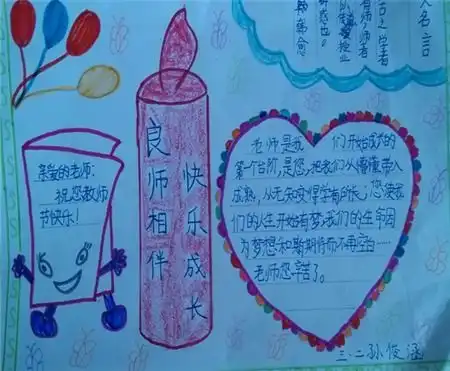 亲爱的老师:
祝您教师
节快乐!
良师相伴
快乐成长
人名言
韩愈
老师是我们开始成功的
第一个台阶,是您,把我们从懵懂带入
成熟,从无知变得学有所长;您使我
们的人生开始有梦;我们的生命因
为梦想和期待而不再空白……
老师您辛苦了。
三.二孙俊涵